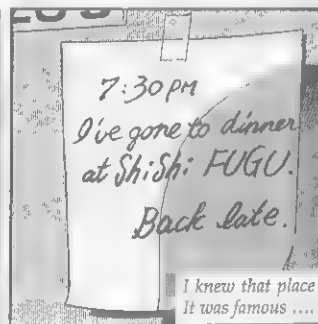 7:30 PM
I've gone to dinner
at ShiShi FUGU.
Back late.
I knew that place
It was famous ....